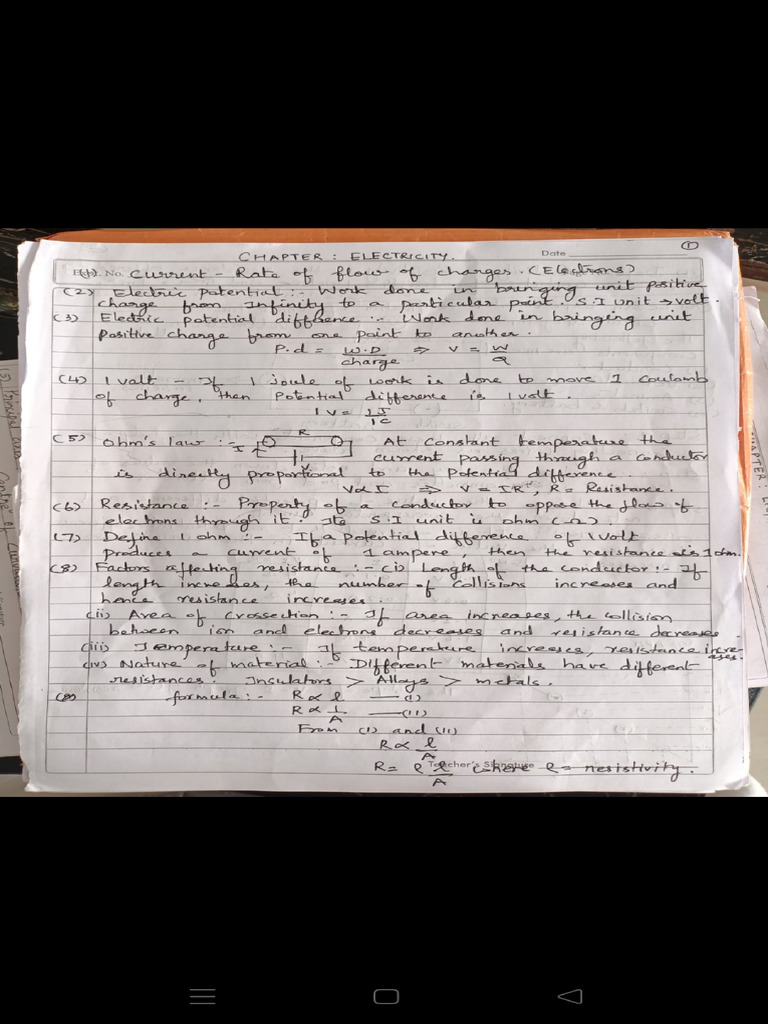 ①
CHAPTER : ELECTRICITY.
Date
(1). No. Current - Rate of flow of charges. (Electrons)
(2) Electric potential :- Work done in bringing unit positive
charge from Infinity to a particular point. S.I unit → volt.
(3) Electric potential difference :- Work done in bringing unit
positive charge from one point to another.
P.d = W.D/charge ⇒ V = W/Q
(4) 1 volt - If 1 joule of work is done to move 1 coulomb
of charge, then Potential difference is 1 volt.
1V = 1J/1C
R
(5) Ohm's law :- I At constant temperature the
V current passing through a conductor
is directly proportional to the Potential difference.
V∝I ⇒ V = IR, R = Resistance.
(6) Resistance :- Property of a conductor to oppose the flow of
electrons through it. Its S.I unit is ohm (Ω).
(7) Define 1 ohm :- If a potential difference of 1 Volt
produces a current of 1 ampere, then the resistance is 1 ohm.
(8) Factors affecting resistance :- (i) Length of the conductor :- If
length increases, the number of collisions increases and
hence resistance increases.
(ii) Area of crossection :- If area increases, the collision
between ion and electrons decreases and resistance decreases
(iii) Temperature :- If temperature increases, resistance increases.
(iv) Nature of material :- Different materials have different
resistances. Insulators > Alloys > metals.
(9) formula :- R ∝ l —(i)
R ∝ 1/A —(ii)
From (i) and (ii)
R ∝ l/A
R = ρ l/A where ρ = resistivity.
Teacher's Signature